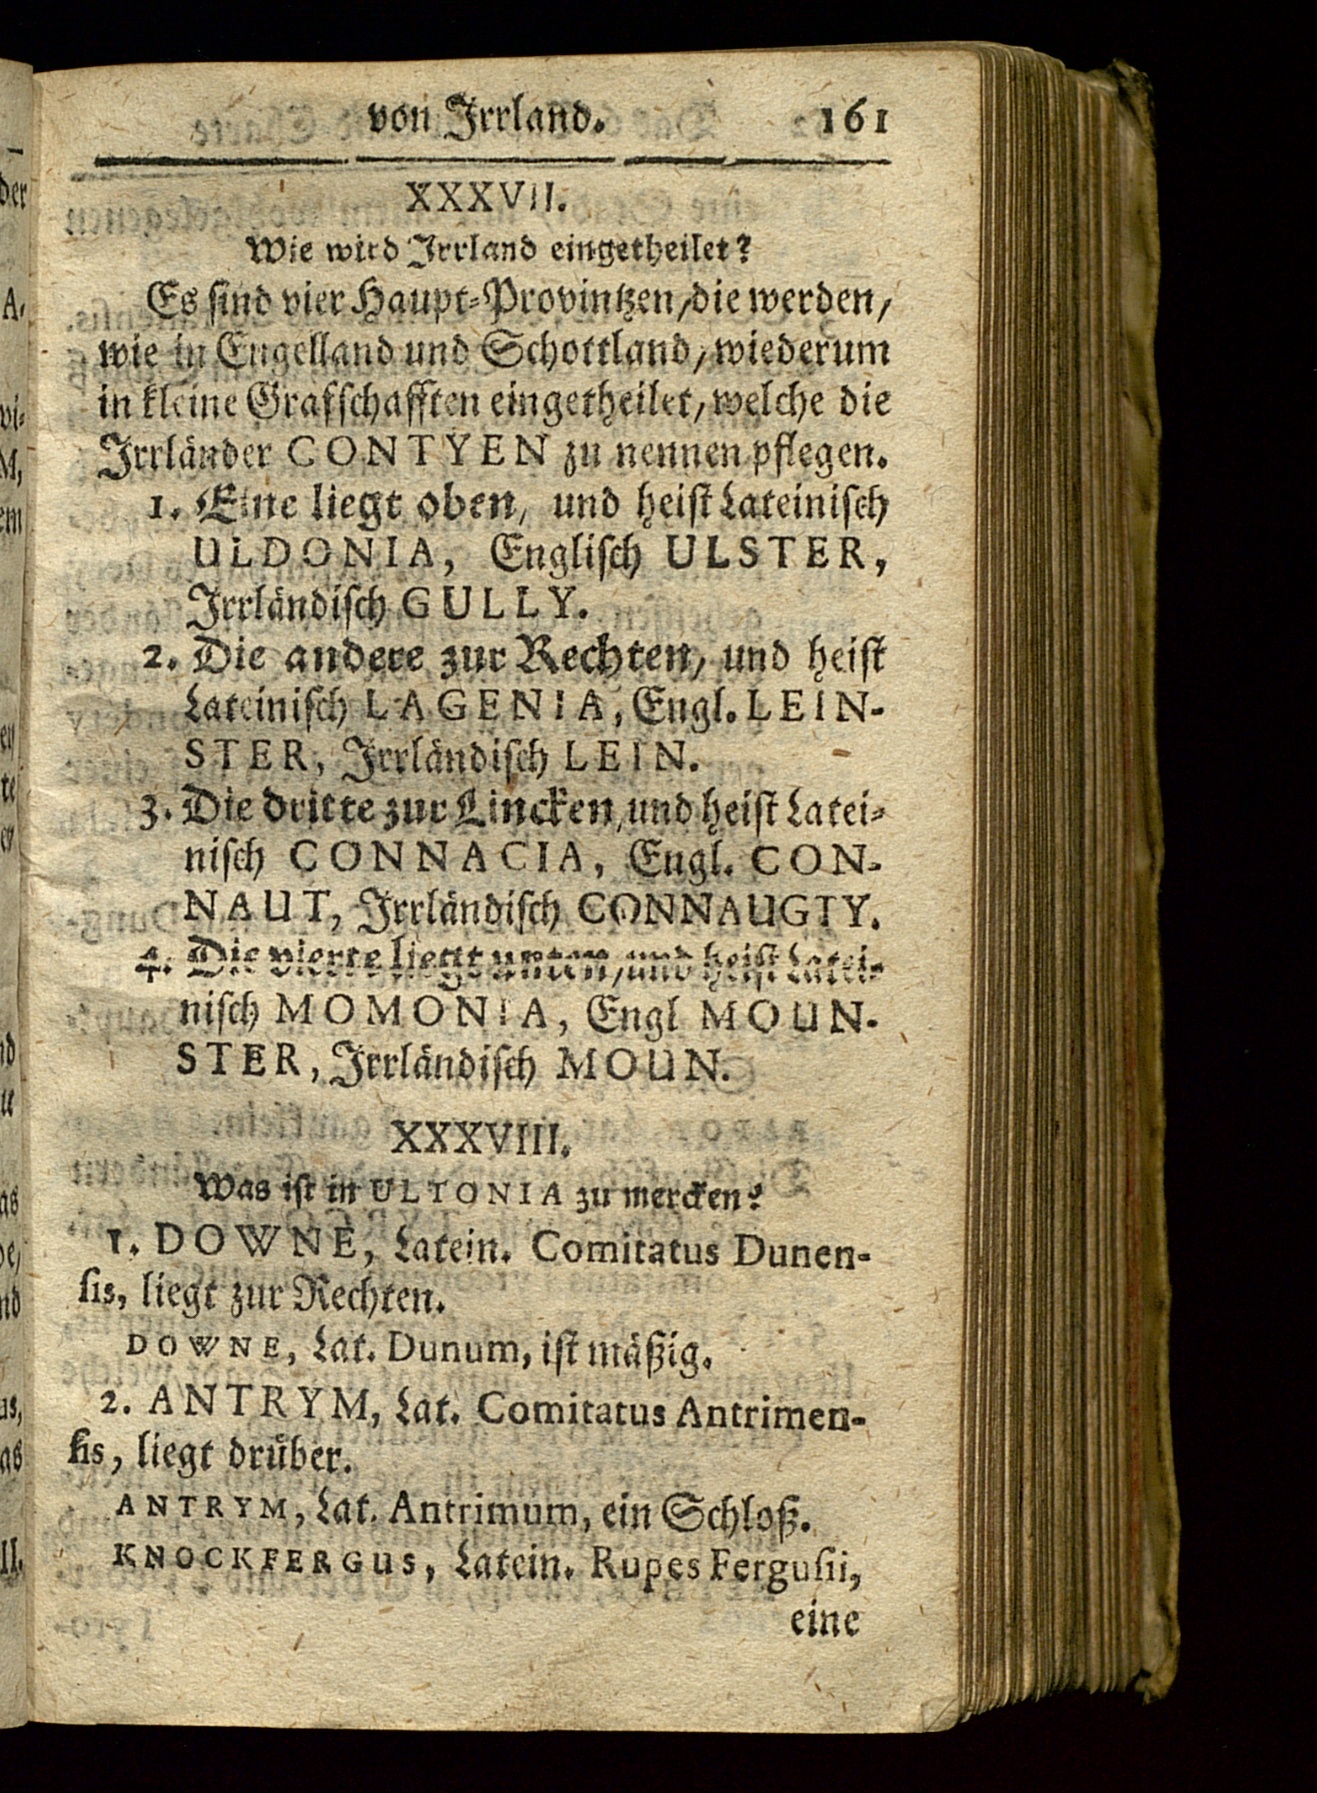 von Jrrland. 161
XXXVII.
Wie wird Jrrland eingetheilet?
Es ſind vier Haupt-Provintzen/die werden/
wie in Engelland und Schottland/wiederum
in kleine Grafſchafften eingetheilet/welche die
Jrrländer CONTYEN zu nennen pflegen.
1. Eine liegt oben/ und heiſt Lateiniſch
ULDONIA, Engliſch ULSTER,
Jrrländiſch GULLY.
2. Die andere zur Rechten/ und heiſt
Lateiniſch LAGENIA, Engl. LEIN-
STER, Jrrländiſch LEIN.
3. Die dritte zur Lincken/und heiſt Latei-
niſch CONNACIA, Engl. CON-
NAUT, Jrrländiſch CONNAUGTY.
4. Die vierte liegt unten/und heiſt Latei-
niſch MOMONIA, Engl MOUN-
STER, Jrrländiſch MOUN.
XXXVIII.
Was iſt in ULTONIA zu mercken?
1. DOWNE, Latein. Comitatus Dunen-
ſis, liegt zur Rechten.
DOWNE, Lat. Dunum, iſt mäßig.
2. ANTRYM, Lat. Comitatus Antrimen-
ſis, liegt drüber.
ANTRYM, Lat. Antrimum, ein Schloß.
KNOCKFERGUS, Latein. Rupes Ferguſii,
eine